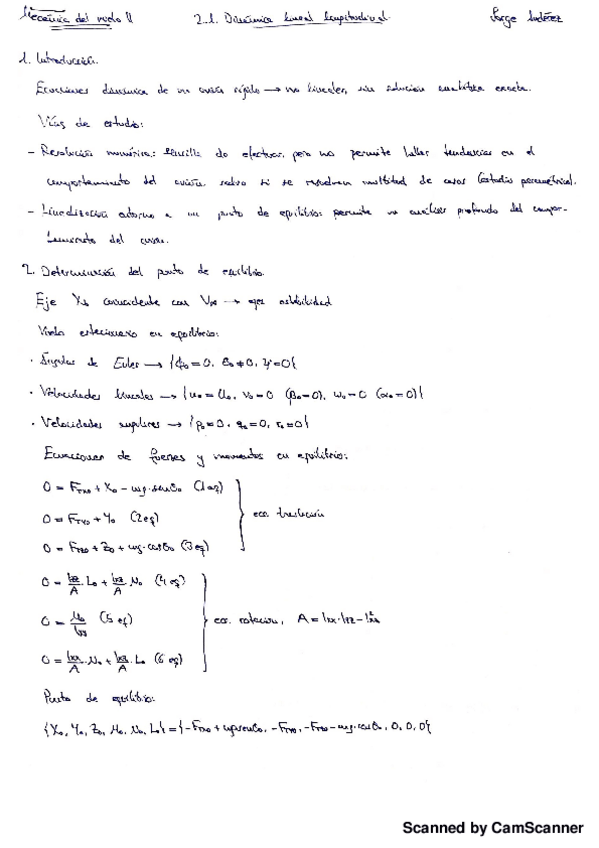 Mecánica del vuelo II 2.1. Dinámica lineal longitudinal. Jorge
1. Introducción.
Ecuaciones dinámica de un avión rígido → no lineales, sin solución analítica exacta.
Vías de estudio:
- Resolución numérica: sencilla de efectuar, pero no permite hallar tendencias en el
comportamiento del avión, salvo si se resuelven multitud de casos (estudio paramétrico).
- Linealización entorno a un punto de equilibrio: permite un análisis profundo del compor-
tamiento del avión.
2. Determinación del punto de equilibrio.
Eje Xs coincidente con V∞ → ejes estabilidad
Vuelo estacionario en equilibrio:
· Ángulos de Euler → {ϕ₀=0, θ₀≠0, ψ=0}
· Velocidades lineales → {u₀=U₀, v₀=0 (β₀=0), w₀=0 (α₀=0)}
· Velocidades angulares → {p₀=0, q₀=0, r₀=0}
Ecuaciones de fuerzas y momentos en equilibrio:
0 = F_Tx0 + X₀ - mg·senθ₀ (1 eq)
0 = F_Ty0 + Y₀ (2 eq)
0 = F_Tz0 + Z₀ + mg·cosθ₀ (3 eq)
ec. traslación
0 = Izz/A · L₀ + Ixz/A · N₀ (4 eq)
0 = M₀/Iyy (5 eq)
0 = Ixx/A · N₀ + Ixz/A · L₀ (6 eq)
ec. rotación, A = Ixx·Izz - I²xz
Punto de equilibrio:
{X₀, Y₀, Z₀, M₀, N₀, L₀} = {-F_Tx0 + mg·senθ₀, -F_Ty0, -F_Tz0 - mg·cosθ₀, 0, 0, 0}
Scanned by CamScanner